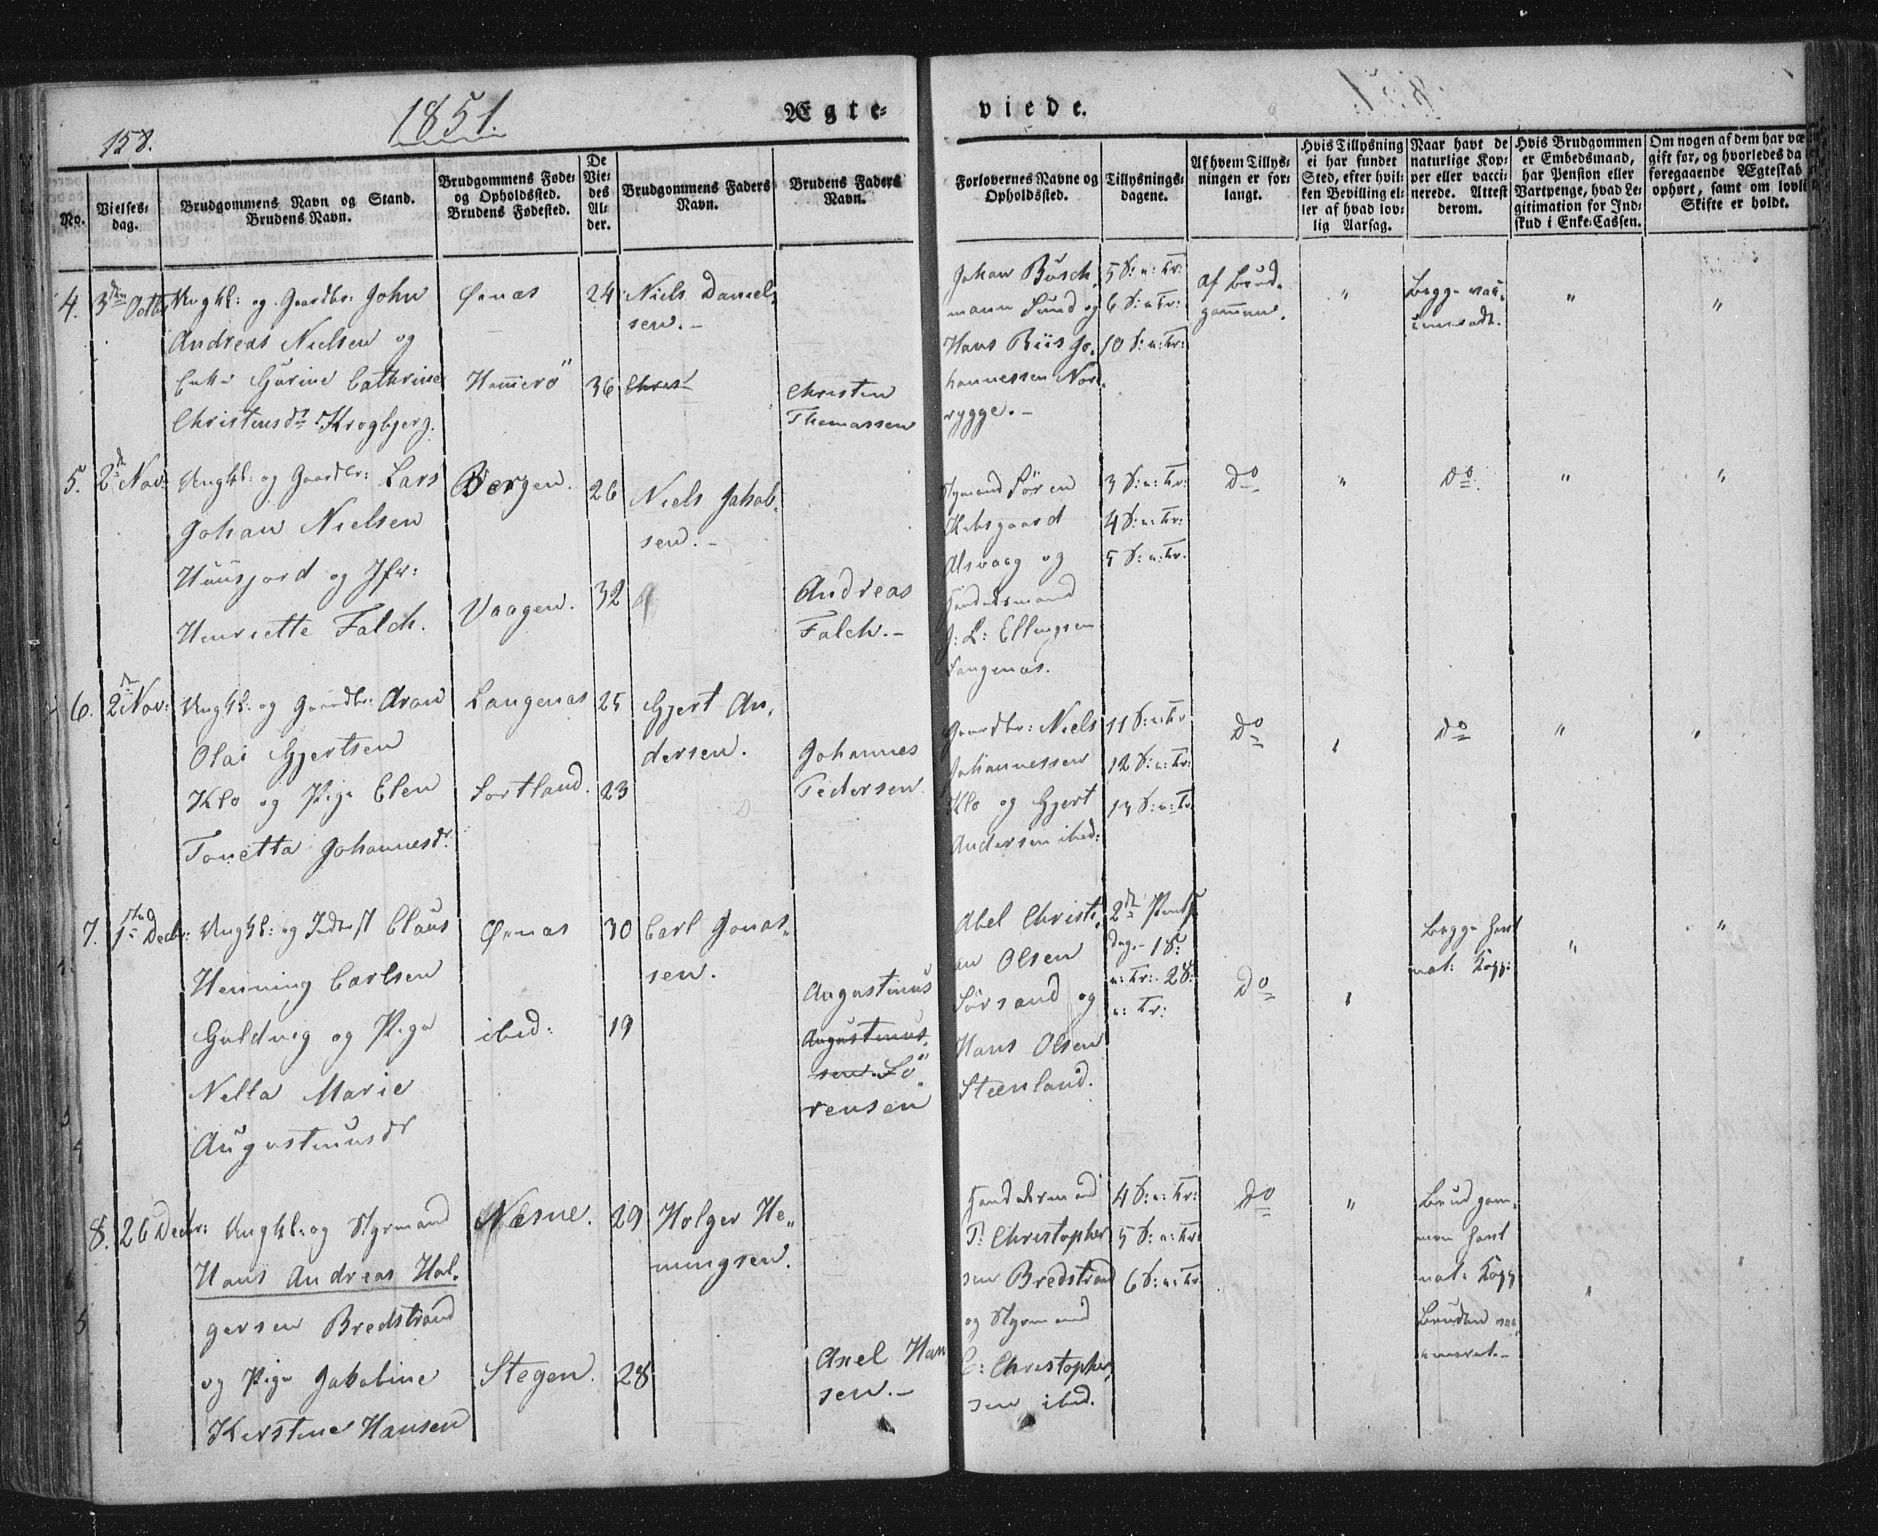 158.
1851.
Ægte=
viede.
No.
Vielses=
dag.
Brudgommens Navn og Stand.
Brudens Navn.
Brudgommens Føde=
og Opholdssted.
Brudens Fødested.
De
Vie=
des
Al=
der.
Brudgommens Faders
Navn.
Brudens Faders
Navn.
Forlovernes Navne og
Opholdssted.
Tillysnings=
dagene.
Af hvem Tillys=
ningen er for=
langt.
Hvis Tillysning
ei har fundet
Sted, efter hvil=
ken Bevilling el=
ler af hvad lov=
lig Aarsag.
Naar havt de
naturlige Kop=
per eller vacci=
nerede. Attest
derom.
Hvis Brudgommen
er Embedsmand,
har Pension eller
Vartpenge, hvad Le=
gitimation for Ind=
skud i Enke=Cassen.
Om nogen af dem har været
gift før, og hvorledes da
foregaaende Ægteskab
ophørt, samt om lovlig
Skifte er holdt.
4.
3den Octbr
Ungkl: og Gaardbr: John
Andreas Nielsen og
Enke Gurine Cathrine
Christensdr Krogbjerg.
Øxnæs
Hammerø
24
36
Niels Daniel=
sen.-
Chris
Christen
Thomassen
Johan Busch
mann Sund og
Hans Riis Jo=
hannessen Nord
rygge.-
5 S: e: Tr:
6 S: e: Tr:
10 S: e: Tr:
af Brud=
gommen.
"
Begge vac=
"
"
5.
2d Nov:
Ungkl: og Gaardbr: Lars
Johan Nielsen
Huusjord og Jfr:
Henriette Falch.
Bergen.
Vaagen.
26
32
Niels Jakob=
sen.-
Andreas
Falch.-
Styrmand Sören
Kibsgaard
Alsvaag og
Handelsmand
J: L: Ellingsen
Langenæs.
3 S: e: Tr:
4 S: e: Tr:
5 S: e: Tr.
Do
"
Do
"
"
6.
2d Nov:
Ungkl: og Gaardbr: Aron
Olai Gjertsen
Klo og Pige Elen
Tonetta Johannesdr.
Langenæs
Sortland.
25
23
Gjert An=
dersen.
Johannes
Pedersen
Gaardbr: Niels
Johannessen
Klo og Gjert
Andersen ibed:
11 S: e: Tr
12 S: e: Tr:
13 S: e: Tr
Do
"
Do
"
"
7.
1ste Decbr:
Ungkl: og Inderst Claus
Henning Carlsen
Guldvig og Pige
Nella Marie
Augustinusdr
Øxnæs
ibed:
30
19
Carl Jonas=
sen.
Augustinus
Augustinus=
sen. Sö=
rensen
Abel Christi=
an Olsen
Sörsand og
Hans Olsen
Steenland.
2d Pintse
Dag.- 1 S:
e: Tr:- 2 S:
e: Tr:
Do
"
Begge havt
nat: Kopp:
"
"
8.
26 Decbr:
Ungkl: og Styrmand
Hans Andreas Hol=
gersen Bredstrand
og Pige Jakobine
Kirstine Hansen
Næsne.
Stegen.
29
28
Holger He=
mingsen.
Axel Han
sen.-
Handelsmand
P: Christopher
sen Bredstrand
og Styrmand
C: Christopher
sen ibed.
4 S: e: Tr:
5 S: e: Tr:
6 S: e: Tr:
Do
"
Brudgom=
men havt
nat: Kopp
Bruden vac=
"
"